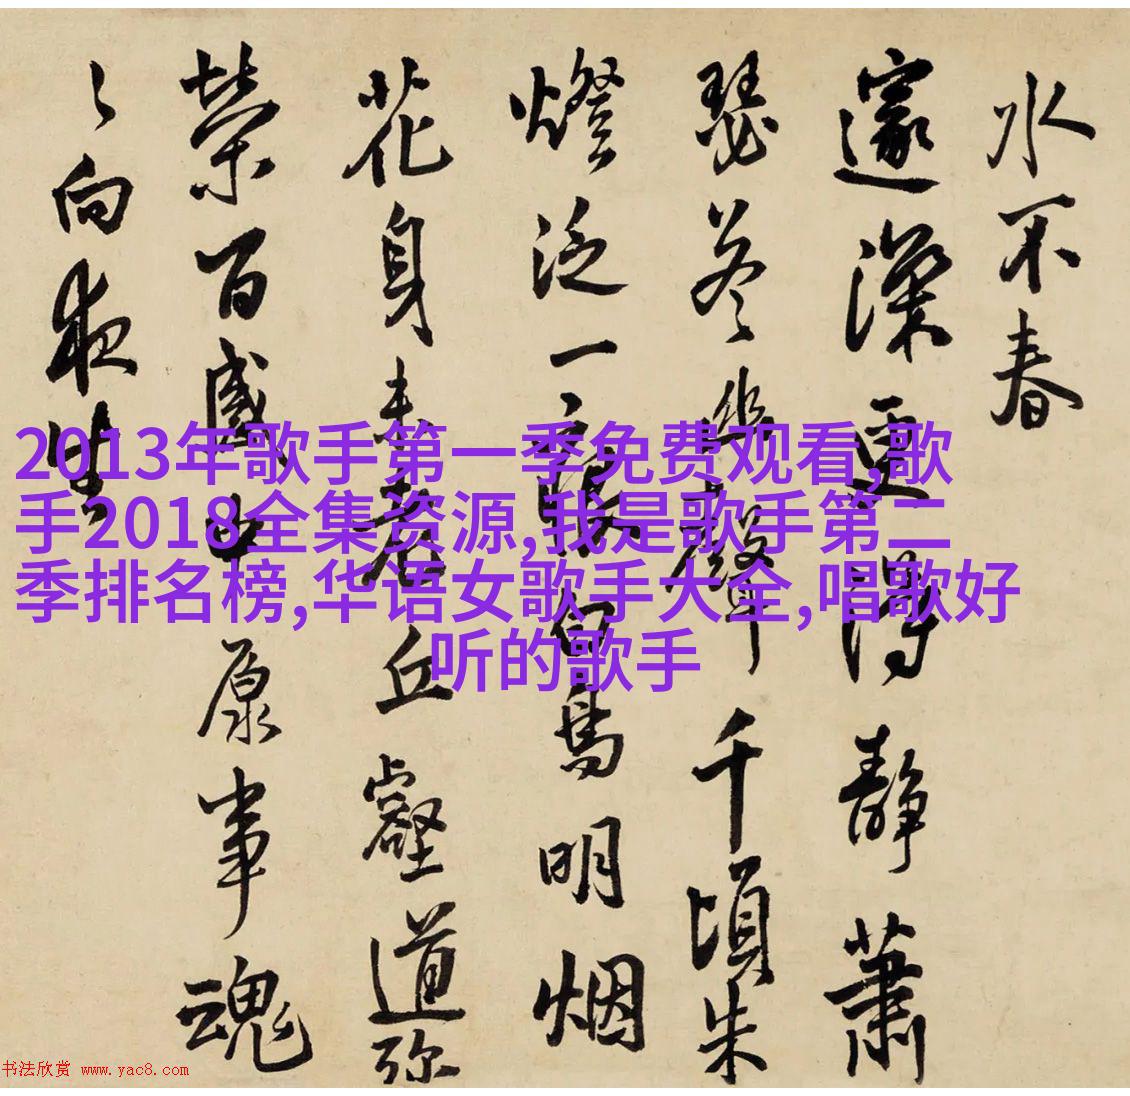 2013年歌手第一季免费观看,歌
手2018全集资源,我是歌手第二
季排名榜,华语女歌手大全,唱歌好
听的歌手
水不春
邃深更得静蕭
瑟冬聲千頃朱
燈泛一白鳥明烟
花身未老丘壑道弥
榮百感中原事魂
向夜
书法欣赏 www.yac8.com